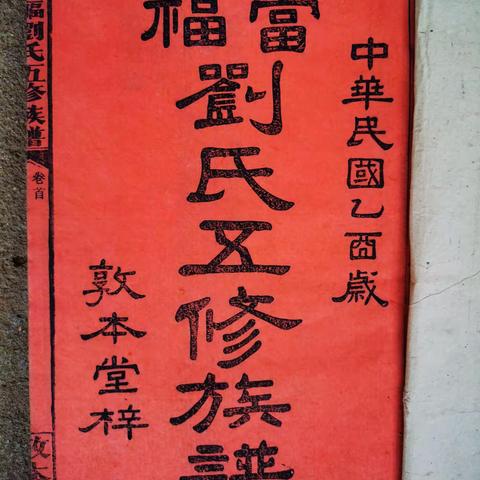 中華民國乙酉歲
福
劉氏五修族譜
敦本堂梓
福劉氏五修族譜
卷首
敦本